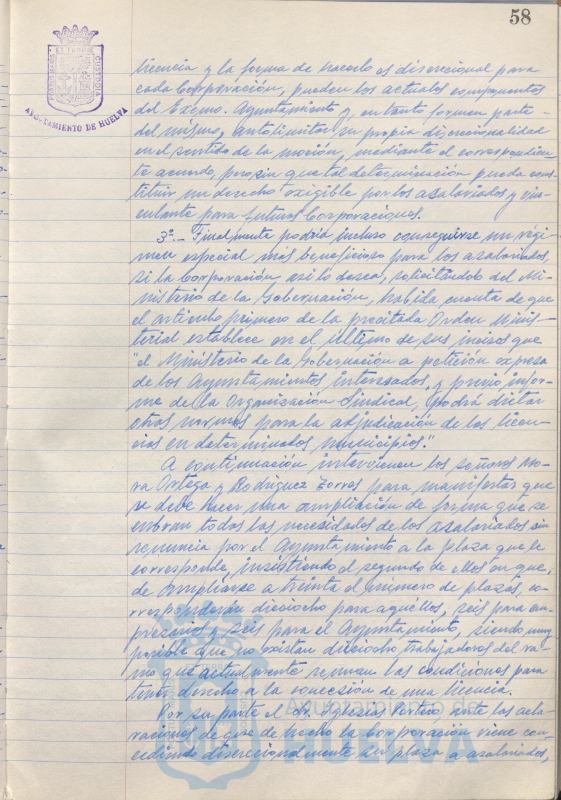 58
AYUNTAMIENTO DE HUELVA
licencia y la forma de hacerlo es discrecional para
cada Corporación, pueden los actuales componentes
del Excmo. Ayuntamiento y en tanto formen parte
del mismo, autolimitar su propia discrecionalidad
en el sentido de la moción, mediante el correspondien-
te acuerdo, pero sin que tal determinación pueda cons-
tituir un derecho exigible por los asalariados y vin-
culante para futuras Corporaciones.
3º.- Finalmente podría incluso conseguirse un régi-
men especial más beneficioso para los asalariados,
si la Corporación así lo desea, solicitándolo del Mi-
nisterio de la Gobernación, habida cuenta de que
el artículo primero de la precitada Orden Minis-
terial establece en el último de sus incisos que
"el Ministerio de la Gobernación a petición expresa
de los Ayuntamientos interesados, y previo infor-
me de la Organización Sindical, podrá dictar
otras normas para la adjudicación de las licen-
cias en determinados municipios."
A continuación intervienen los señores Mo-
ra Ortega y Rodríguez Torres para manifestar que
se debe hacer una ampliación de forma que se
cubran todas las necesidades de los asalariados sin
renuncia por el Ayuntamiento a la plaza que le
corresponde, insistiendo el segundo de ellos en que,
de ampliarse a treinta el número de plazas, co-
rresponderían dieciocho para aquéllos, seis para em-
presarios y seis para el Ayuntamiento, siendo muy
posible que no existan dieciocho trabajadores del ra-
mo que actualmente reunan las condiciones para
tener derecho a la concesión de una licencia.
Por su parte el Sr. Iglesias, ante las acla-
raciones de que de hecho la Corporación viene con-
cediendo discrecionalmente su plaza a asalariados,
Ayuntamiento de
HUELVA